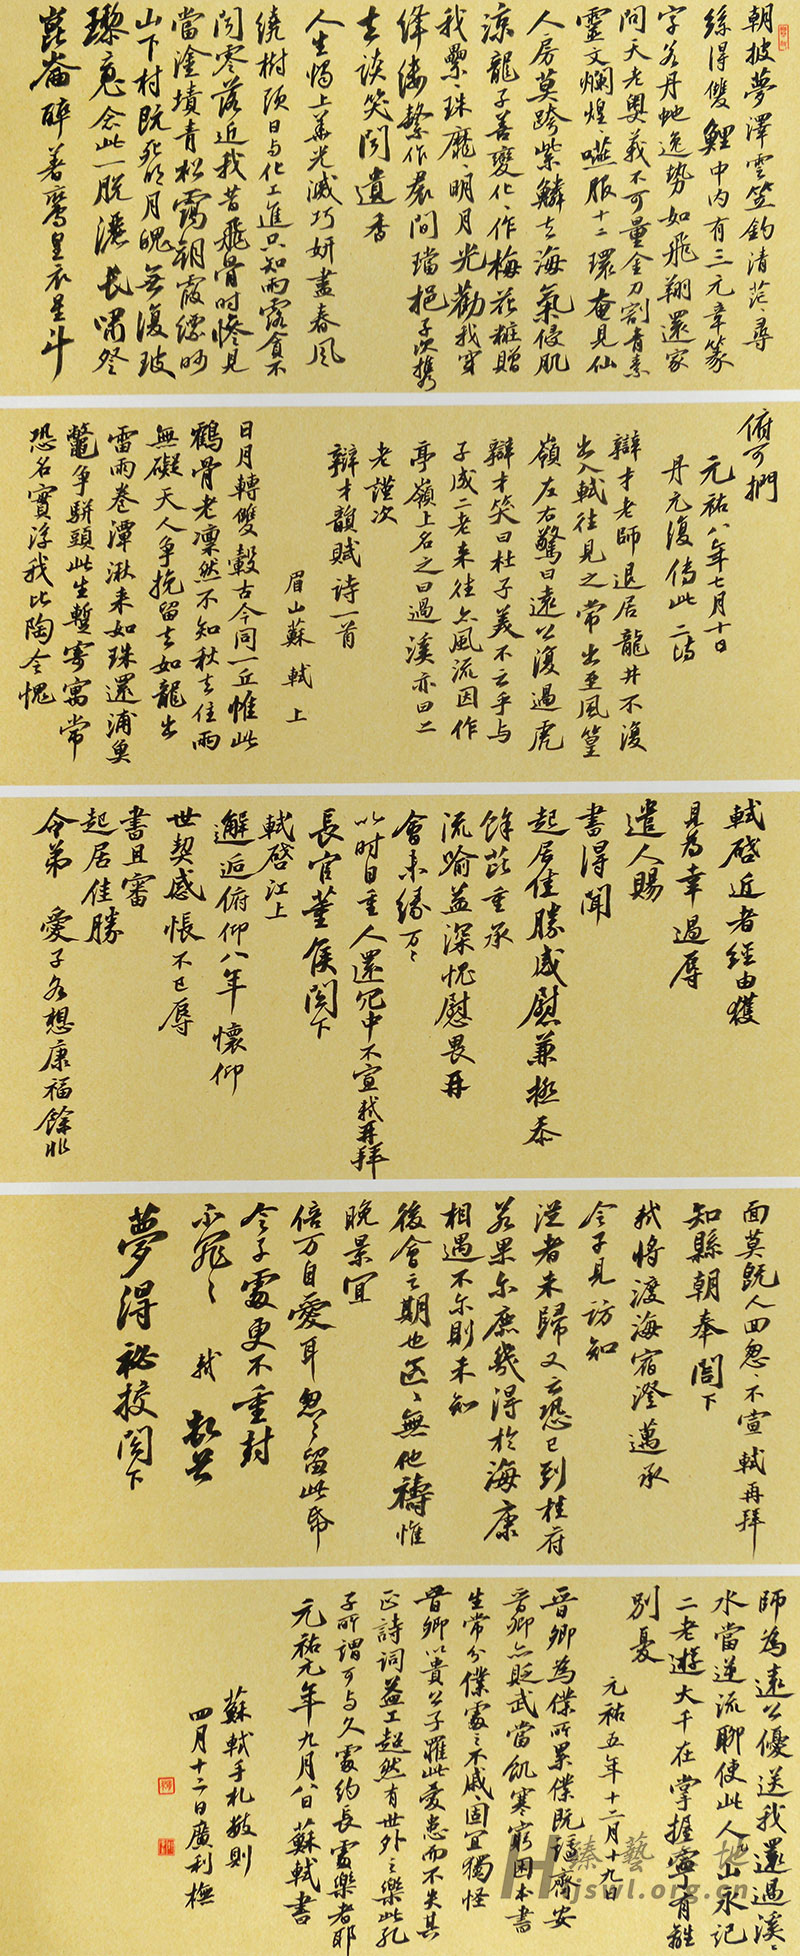 朝披夢澤雲笠釣清茫茫尋
絲得雙鯉中内有三元章篆
字若丹虵逸勢如飛翔還家
問天老奥義不可量金刀割青素
靈文爛煌煌嚥服十二環奄見仙
人房莫跨紫鱗去海氣侵肌
涼龍子善變化化作梅花粧贈
我纍纍珠靡靡明月光勸我穿
絳縷繫作裙間璫挹子以攜
去談笑聞遺香
人生燭上華光滅巧妍盡春風
繞樹頭日与化工進只知雨露貪不
聞零落近我昔飛骨時慘見
當塗墳青松靄朝霞縹眇
山下村既死明月魄無復玻
瓈魂念此一脫灑長嘯祭
崑崙醉著鸞皇衣星斗
俯可捫
元祐八年七月十日
丹元復傳此二詩
辯才老師退居龍井不復
出入軾往見之常出至風篁
嶺左右驚曰遠公復過虎
溪矣辯才笑曰杜子美不云乎与
子成二老来往亦風流因作
亭嶺上名之曰過溪亦曰二
老謹次
辯才韻賦詩一首
眉山蘇軾上
日月轉雙轂古今同一丘惟此
鶴骨老凜然不知秋去住兩
無礙天人争挽留去如龍出
雷雨卷潭湫来如珠還浦魚
鼈争駢頭此生蹔寄寓常
恐名實浮我比陶令愧
軾啓近者經由獲
見為幸過辱
遣人賜
書得聞
起居佳勝感慰兼極忝
餘芘重承
流喻益深愧慰畏再
會未緣万万
以时自重人還冗中不宣軾再拜
長官董侯閣下
軾啓江上
邂逅俯仰八年懷仰
世契感悵不已辱
書且審
起居佳勝
令弟愛子各想康福餘非
面莫既人回怱怱不宣軾再拜
知縣朝奉閣下
軾將渡海宿澄邁承
令子見訪知
從者未歸又云恐已到桂府
若果尔庶幾得於海康
相遇不尔則未知
後會之期也區區無他禱惟
晚景宜
倍万自愛耳怱怱留此帋
令子處更不重封
不罪不罪軾頓首
夢得祕挍閣下
師為遠公優送我還過溪溪
水當逆流聊使此人山永記
二老遊大千在掌握寧有離
別憂
元祐五年十二月十九日
晉卿為僕所累僕既謫齊安
晉卿亦貶武當飢寒窮困本書
生常分僕處之不戚戚固宜獨怪
晉卿以貴公子罹此憂患而不失其
正詩詞益工超然有世外之樂此孔
子所謂可与久處約長處樂者耶
元祐元年九月八日蘇軾書
蘇軾手札数則
四月十二日廣利撫
臻藝 地
hjswl.org.cn